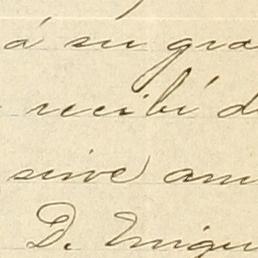 á su gra
recibí d
sive am
D. Enriqu